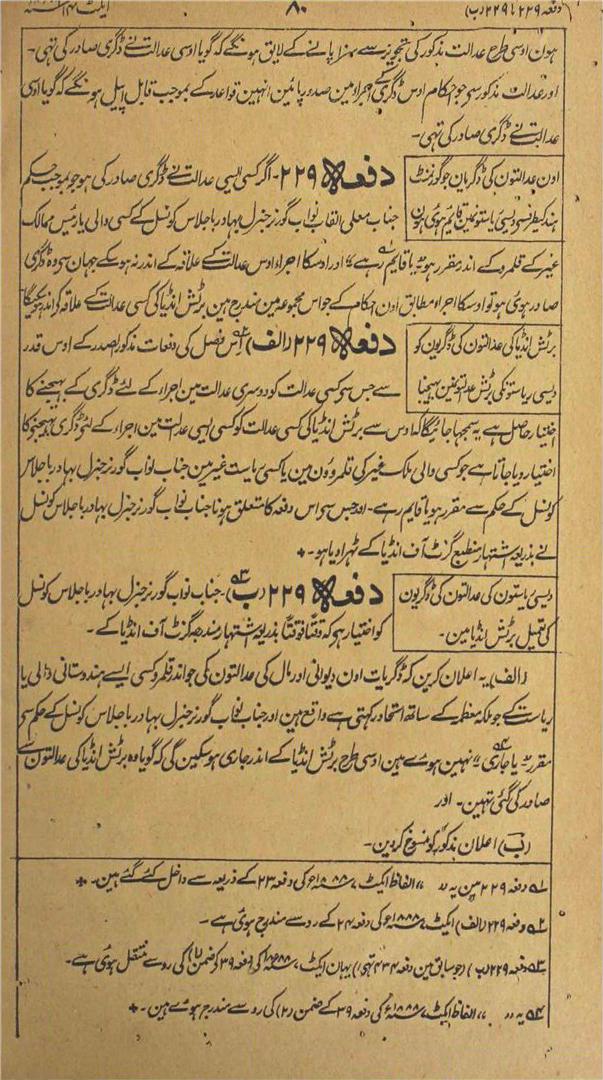 دفعہ ۲۲۹ تا ۲۲۹ (ب)
۸۰
ہون اوسی طرح عدالت مذکور کی تجویز سے سزا پانے کے لایق ہونگے کہ گویا اوسی عدالت نے ڈگری صادر کی تہی۔
اور عدالت مذکور سی جو احکام اوس ڈگری کے اجرا مین صدور پائین انہین قواعد کے بموجب قابل اپیل ہونگے کہ گویا اوسی
عدالت نے ڈگری صادر کی تہی۔
اون عدالتون کی ڈگریان جو گورنمنٹ
ہند کیطرف سی دیسی ریاستونمین قایم ہوئی ہون
دفعہ ۲۲۹۔ اگر کسی ایسی عدالت نے ڈگری صادر کی ہو جو بموجب حکم
جناب معلی القاب نواب گورنر جنرل بہادر باجلاس کونسل کے کسی والی یا رئیس ممالک
غیر کے قلمرو کے اندر مقرر ہو یا قایم رہے اور اوسکا اجراء اوس عدالت کے علاقہ کے اندر نہ ہو سکے جہان سی وہ ڈگری
صادر ہوئی ہو تو اوسکا اجراء مطابق اون احکام کے جو اس مجموعہ مین مندرج ہین برٹش انڈیا کی کسی عدالت کے علاقہ کے اندر ہو سکیگا
برٹش انڈیا کی عدالتون کی ڈگریون کو
دیسی ریاستونکی برٹش عدالتونمین بہیجنا
دفعہ ۲۲۹ (الف) اس فصل کی دفعات مذکور بصدر کے اوس قدر
سے جس سی کسی عدالت کو دوسری عدالت مین اجراء کے لئے ڈگری کے بہیجنے کا
اختیار حاصل ہے یہ سمجہا جائیگا کہ اوس سے برٹش انڈیا کی کسی عدالت کو کسی ایسی عدالت مین اجراء کے لئے ڈگری بہیجنے کا
اختیار دیا جاتا ہے جو کسی والی ملک غیر کی قلمرو ون مین یا کسی ریاست غیر مین جناب نواب گورنر جنرل بہادر باجلاس
کونسل کے حکم سے مقرر ہو یا قایم رہے۔ اور جس سی اس دفعہ کا متعلق ہونا جناب نواب گورنر جنرل بہادر باجلاس کونسل
نے بذریعہ اشتہار منطبع گزٹ آف انڈیا کے ٹہرا دیا ہو۔ +
دیسی ریاستون کی عدالتون کی ڈگریون
کی تعمیل برٹش انڈیا مین۔
دفعہ ۲۲۹ (ب)۔ جناب نواب گورنر جنرل بہادر باجلاس کونسل
کو اختیار ہو کہ وقتاً فوقتاً بذریعہ اشتہار مندرجہ گزٹ آف انڈیا کے۔
(الف) یہ اعلان کرین کہ ڈگریات اون دیوانی اور مال کی عدالتون کی جو اندر قلمرو کسی ایسے ہندوستانی والی یا
ریاست کے جو ملکہ معظمہ کے ساتھ اتحاد رکہتی ہے واقع ہین اور جناب نواب گورنر جنرل بہادر باجلاس کونسل کے حکم سی
مقرر یا جاری نہین ہوے ہین اوسی طرح برٹش انڈیا کے اندر جاری ہو سکین گی کہ گویا وہ برٹش انڈیا کی عدالتون سے
صادر کی گئی تہین۔ اور
(ب) اعلان مذکور کو منسوخ کر دین۔
۵۱ دفعہ ۲۲۹ مین یہ " " الفاظ ایکٹ ۷ سنہ ۱۸۸۸ء کی دفعہ ۲۳ کے ذریعہ سے داخل کئے گئے ہین۔ +
۵۲ دفعہ ۲۲۹ (الف) ایکٹ ۷ سنہ ۱۸۸۸ء کی دفعہ ۲۴ کے رو سے مندرج ہوئی ہے۔
۵۳ دفعہ ۲۲۹ (ب) (جو سابق مین دفعہ ۴۳۴ تہی) یہان ایکٹ ۷ سنہ ۱۸۸۸ء کی دفعہ ۳۹ کے ضمن (۱) کی رو سے منتقل ہوئی ہے۔
۵۴ یہ " " الفاظ ایکٹ ۷ سنہ ۱۸۸۸ء کی دفعہ ۳۹ کے ضمن (۲) کی رو سے مندرج ہوے ہین۔ +